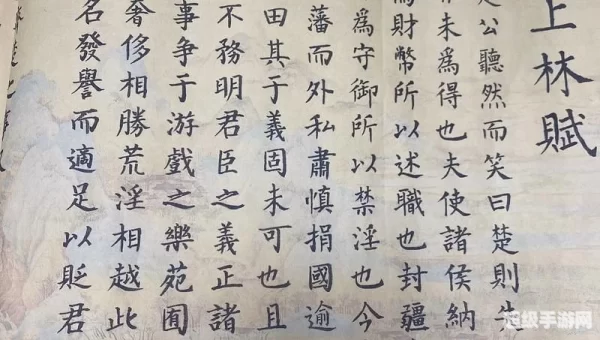 上林賦
是公聽然而笑曰楚則失
未爲得也夫使諸侯納
財幣所以述職也封疆
爲守御所以禁淫也今
藩而外私肅慎捐國逾
田其于義固未可也且
不務明君臣之義正諸
事争于游戲之樂苑囿
奢侈相勝荒淫相越此
名發譽而適足以貶君
超级手游网